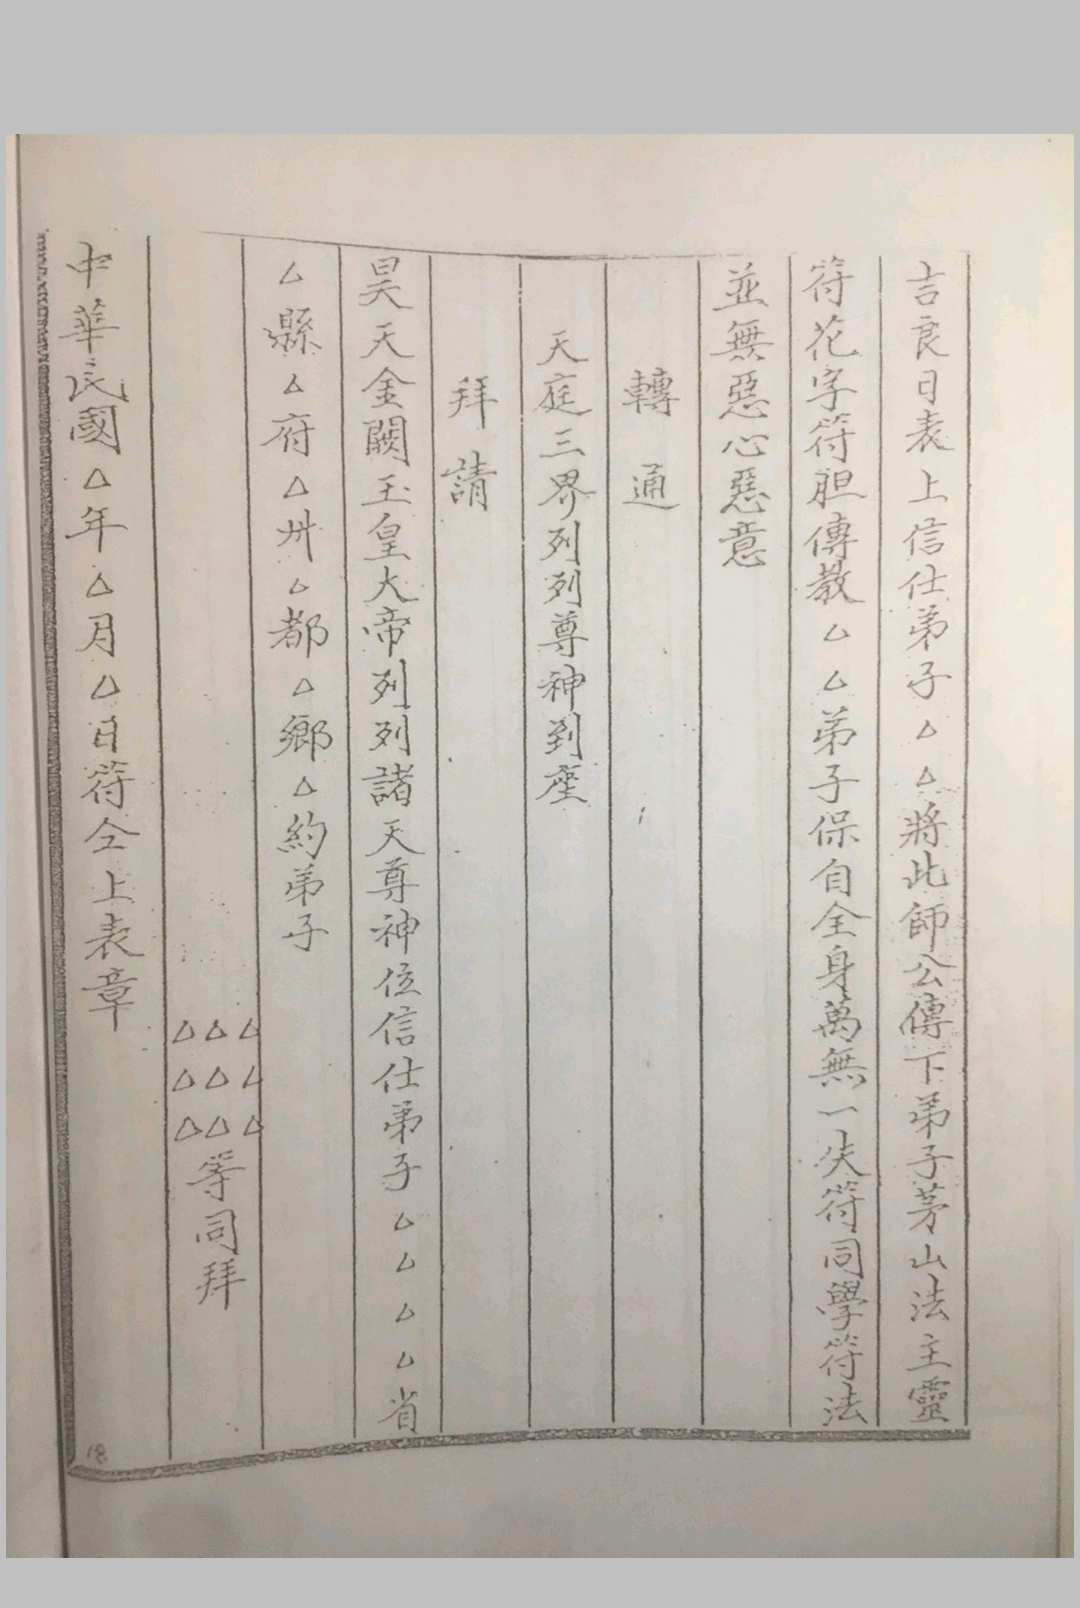 吉良日表上信仕弟子△△將此師公傳下弟子茅山法主靈
符花字符胆傳教△△弟子保自全身萬無一失符同學符法
並無惡心惡意
轉通
天庭三界列列尊神到座
拜請
昊天金闕玉皇大帝列列諸天尊神位信仕弟子△△△△省
△縣△府△州△都△鄉△約弟子
△△△
△△△
△△△
等同拜
中華民國△年△月△日符仝上表章
18